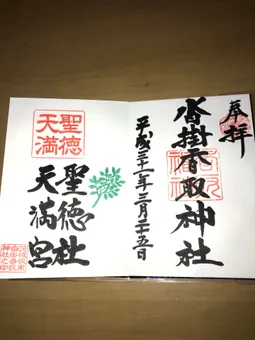 奉拝
沓掛香取神社
平成三十一年三月二十五日
聖徳
天満
聖徳社
天満宮